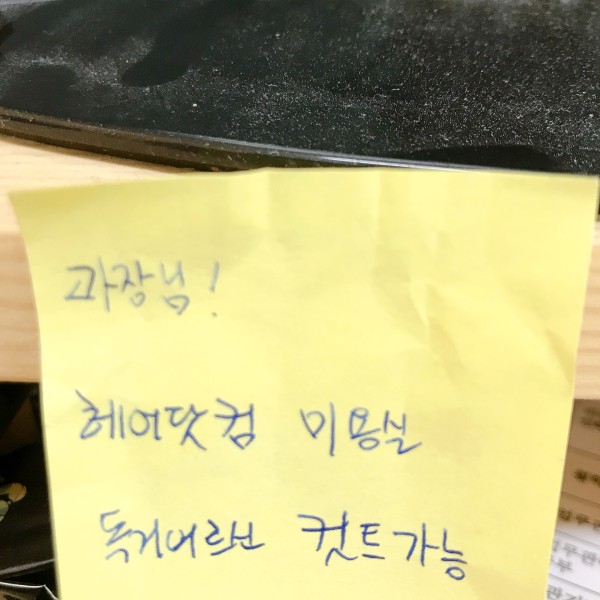 과장님!
헤어닷컴 미용실
독거어르신 컷트가능